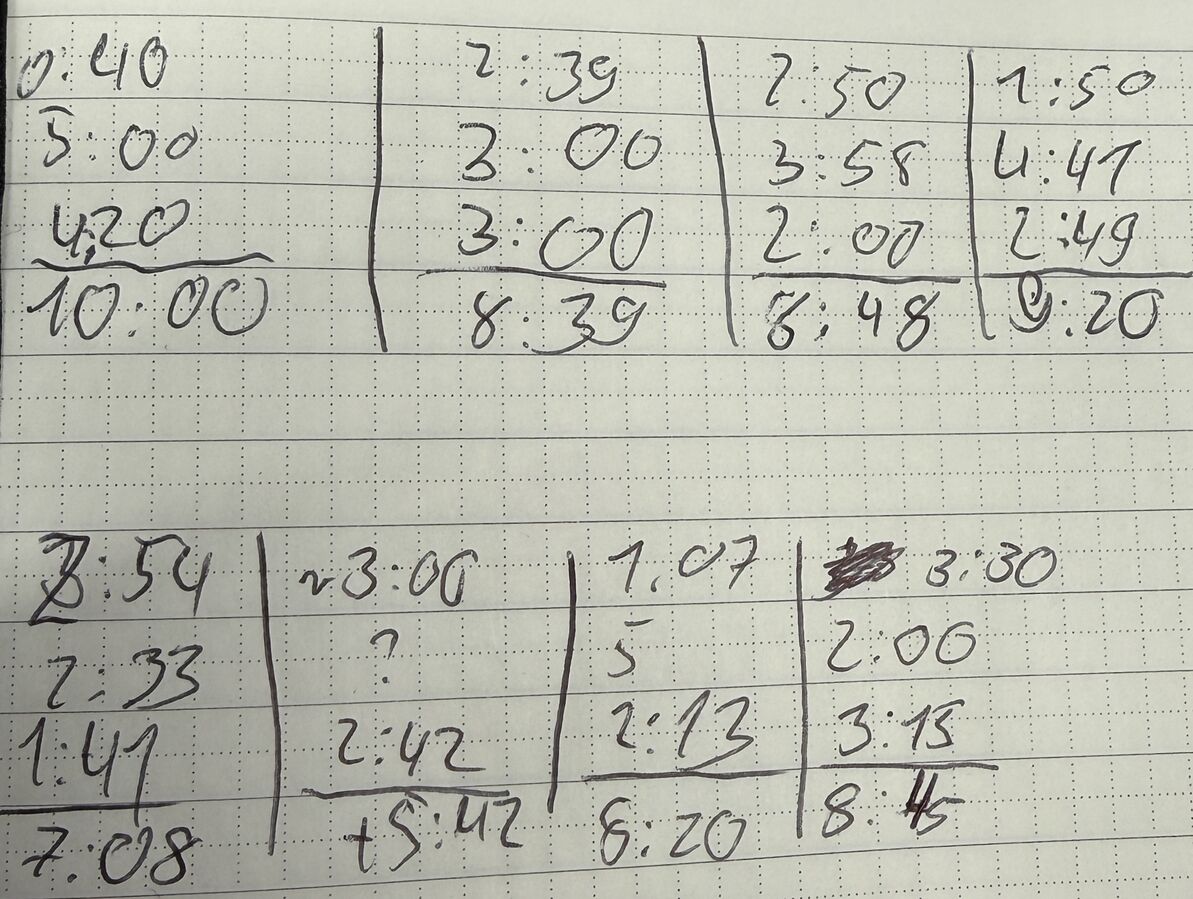 0:40 2:39 2:50 1:50
5:00 3:00 3:58 4:41
4:20 3:00 2:00 2:49
10:00 8:39 8:48 9:20
2:54 ~3:00 1.07 3:30
2:33 ? 5 2:00
1:41 2:42 2:13 3:15
7:08 +5:42 8:20 8:45